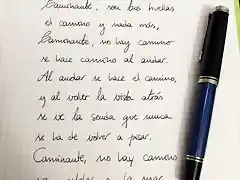 Caminante, son tus huellas
el camino y nada más,
Caminante, no hay camino
se hace camino al andar.
Al andar se hace el camino,
y al volver la vista atrás
se ve la senda que nunca
se ha de volver a pisar.
Caminante, no hay camino
la mar